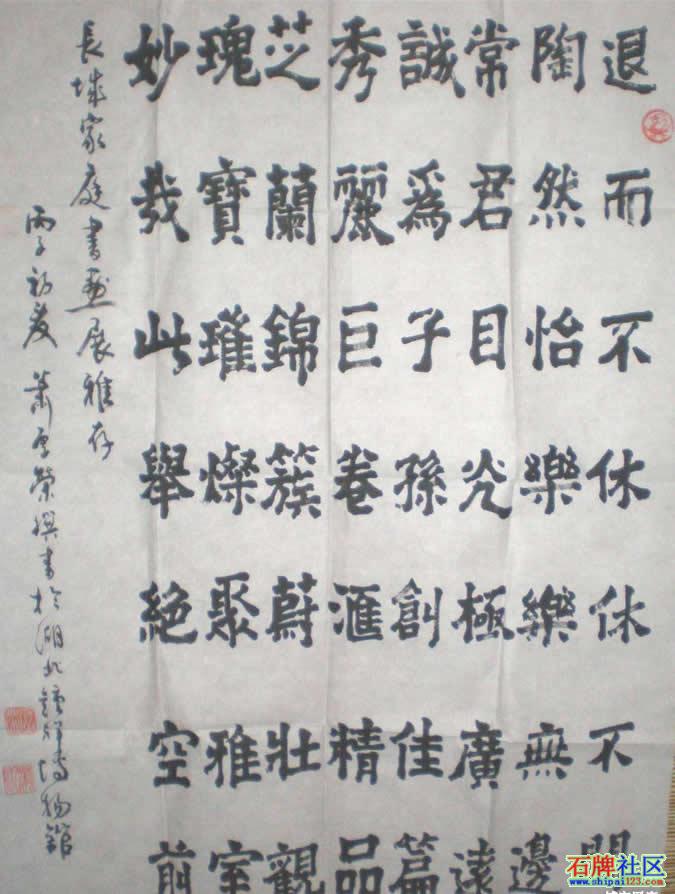 退而不休休不閒
陶然怡樂樂無邊
常君目光極廣遠
誠為子孫創佳篇
秀麗巨卷滙精品
芝蘭錦簇蔚壯觀
瑰寶璀燦聚雅室
妙哉此舉絕空前
長城家庭書画展雅存
丙子初夏 萧厚榮撰書於湖北鐘祥博物館
石牌社区
www.shipai123.com